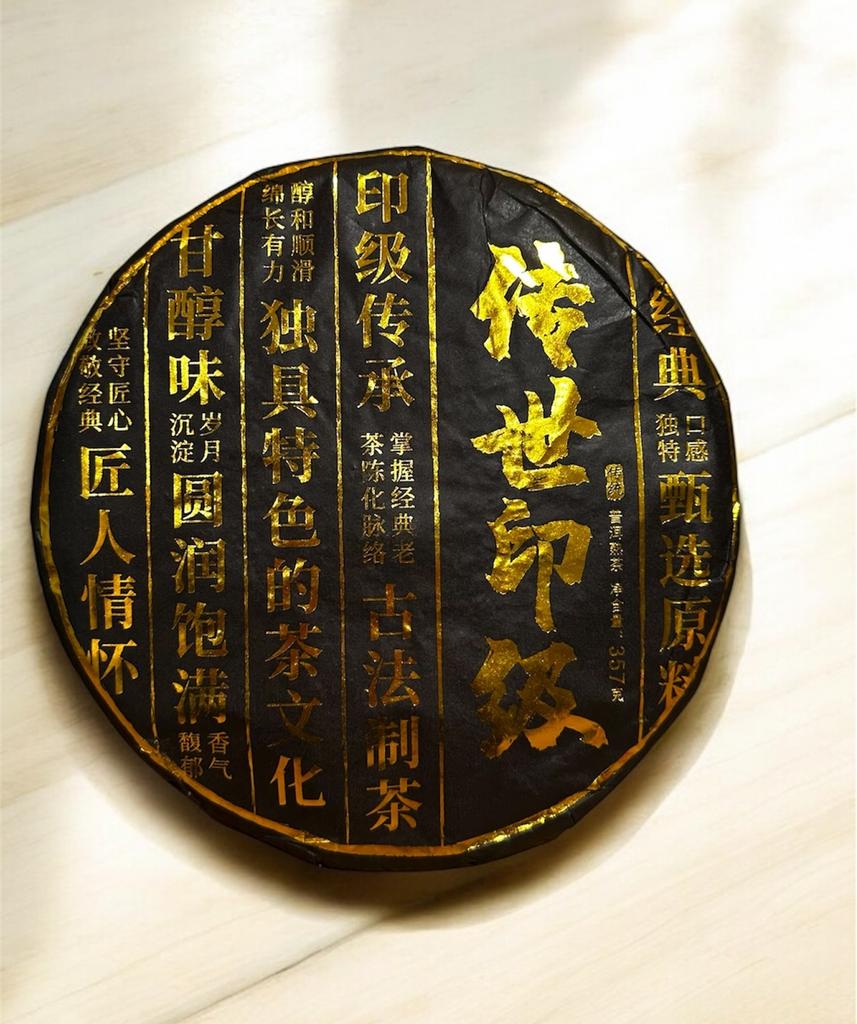 经典
口感
独特
甄选原料
普洱熟茶 净含量:357克
传世印级
印级传承
掌握经典老
茶陈化脉络
古法制茶
醇和顺滑
绵长有力
独具特色的茶文化
甘醇味
岁月
沉淀
圆润饱满
香气
馥郁
坚守匠心
致敬经典
匠人情怀